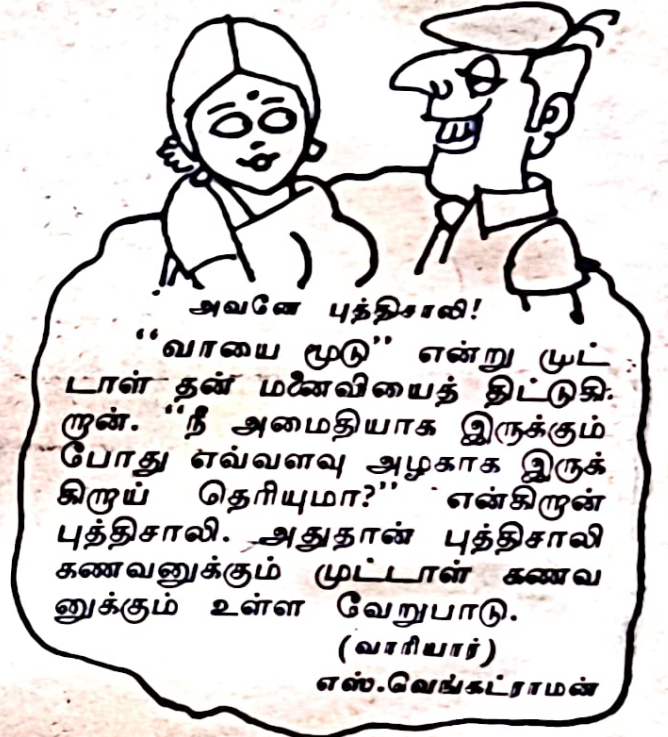 அவனே புத்திசாலி!
“வாயை மூடு” என்று முட்
டாள் தன் மனைவியைத் திட்டுகி
றான். “நீ அமைதியாக இருக்கும்
போது எவ்வளவு அழகாக இருக்
கிறாய் தெரியுமா?” என்கிறான்
புத்திசாலி. அதுதான் புத்திசாலி
கணவனுக்கும் முட்டாள் கணவ
னுக்கும் உள்ள வேறுபாடு.
(வாரியார்)
எஸ்.வெங்கட்ராமன்